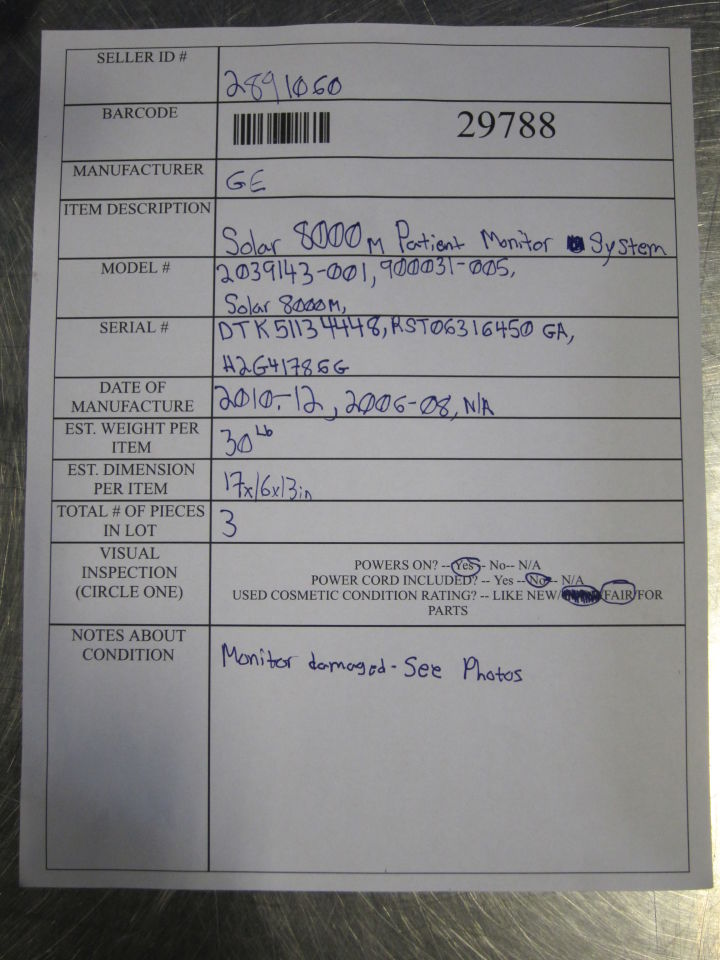 SELLER ID #
2891060
BARCODE
29788
MANUFACTURER
GE
ITEM DESCRIPTION
Solar 8000 M Patient Monitor System
MODEL #
2039143-001, 900031-005,
Solar 8000M,
SERIAL #
DTK51134448, RST06316450 GA,
H2G41785G
DATE OF
MANUFACTURE
2010-12, 2006-08, N/A
EST. WEIGHT PER
ITEM
30 Lb
EST. DIMENSION
PER ITEM
17x16x13in
TOTAL # OF PIECES
IN LOT
3
VISUAL
INSPECTION
(CIRCLE ONE)
POWERS ON? -- Yes -- No-- N/A
POWER CORD INCLUDED? -- Yes -- No-- N/A
USED COSMETIC CONDITION RATING? -- LIKE NEW/ /FAIR/FOR
PARTS
NOTES ABOUT
CONDITION
Monitor damaged - See Photos